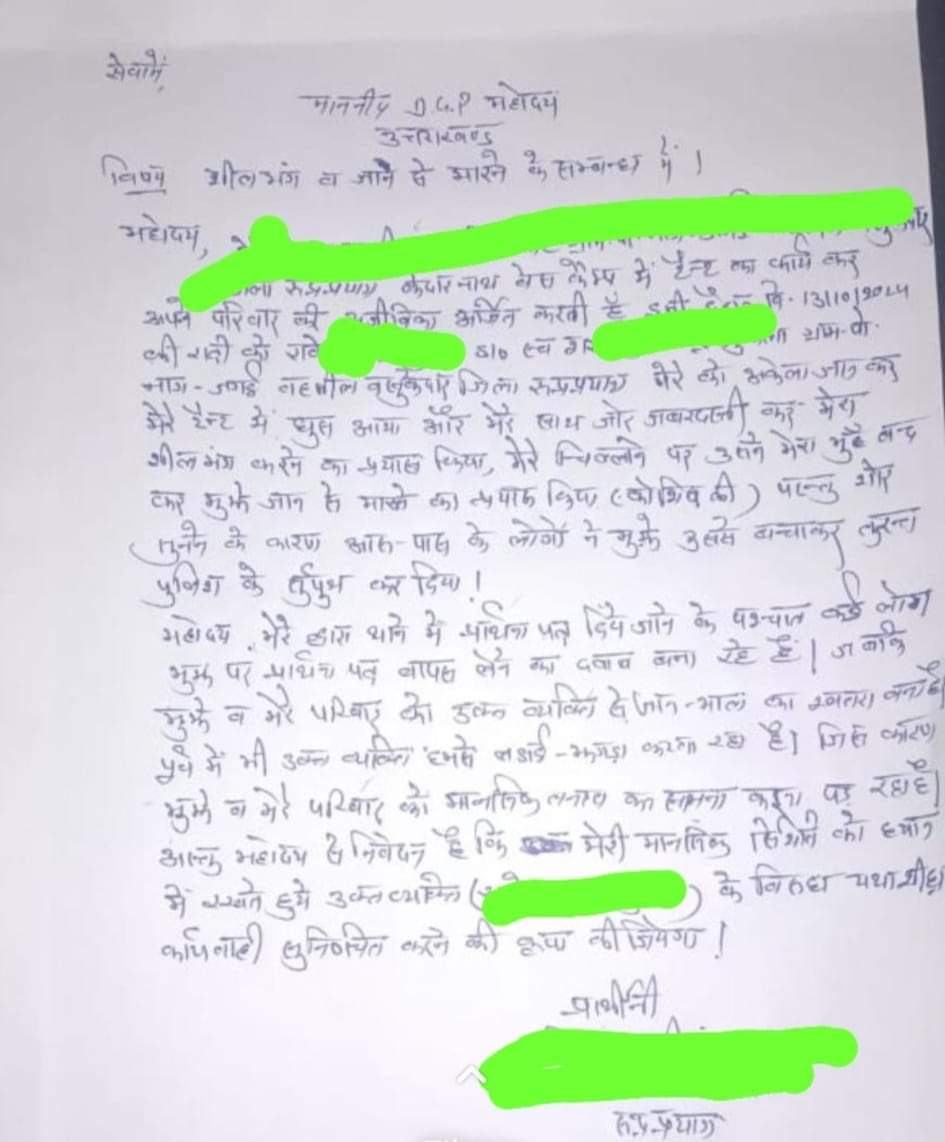 सेवामें,
माननीय D.G.P महोदय
उत्तराखण्ड
विषय शीलभंग व जान से मारने के सम्बन्ध में।
महोदय,
रूद्रप्रयाग केदारनाथ बेस कैम्प में टैन्ट का कार्य कर
अपने परिवार की अजीविका अर्जित करती है इसी दि. 13/10/2024
की रात्री को S/o स्व ग्राम-पो.
तहसील वसुकेदार जिला रूद्रप्रयाग मेरे को अकेला जान कर
मेरे टैन्ट में घुस आया और मेरे साथ जोर जबरदस्ती कर मेरा
शीलभंग करने का प्रयास किया, मेरे चिल्लाने पर उसने मेरा मुँह बन्द
कर मुझे जान से मारने का प्रयास किया (कोशिश की) परन्तु शोर
सुनने के कारण आस-पास के लोगों ने मुझे उससे बचाकर तुरन्त
पुलिस के सुपुर्द कर दिया!
महोदय, मेरे द्वारा थाने में प्रार्थना पत्र दिये जाने के पश्चात कई लोग
मुझ पर प्रार्थना पत्र वापस लेने का दवाव बना रहे हैं। जबकि
मुझे व मेरे परिवार को उक्त व्यक्ति से जान-माल का खतरा बना है
पूर्व में भी उक्त व्यक्ति हमसे लडाई-झगड़ा करता रहा है। जिस कारण
मुझे व मेरे परिवार को मानसिक तनाव का सामना करना पड़ रहा है।
अस्तु महोदय से निवेदन है कि मेरी मानसिक स्थिति को ध्यान
में रखते हुये उक्त व्यक्ति ( ) के विरुद्ध यथाशीघ्र
कार्यवाही सुनिश्चित करने की कृपा कीजियेगा!
प्रार्थीनी
रूद्रप्रयाग